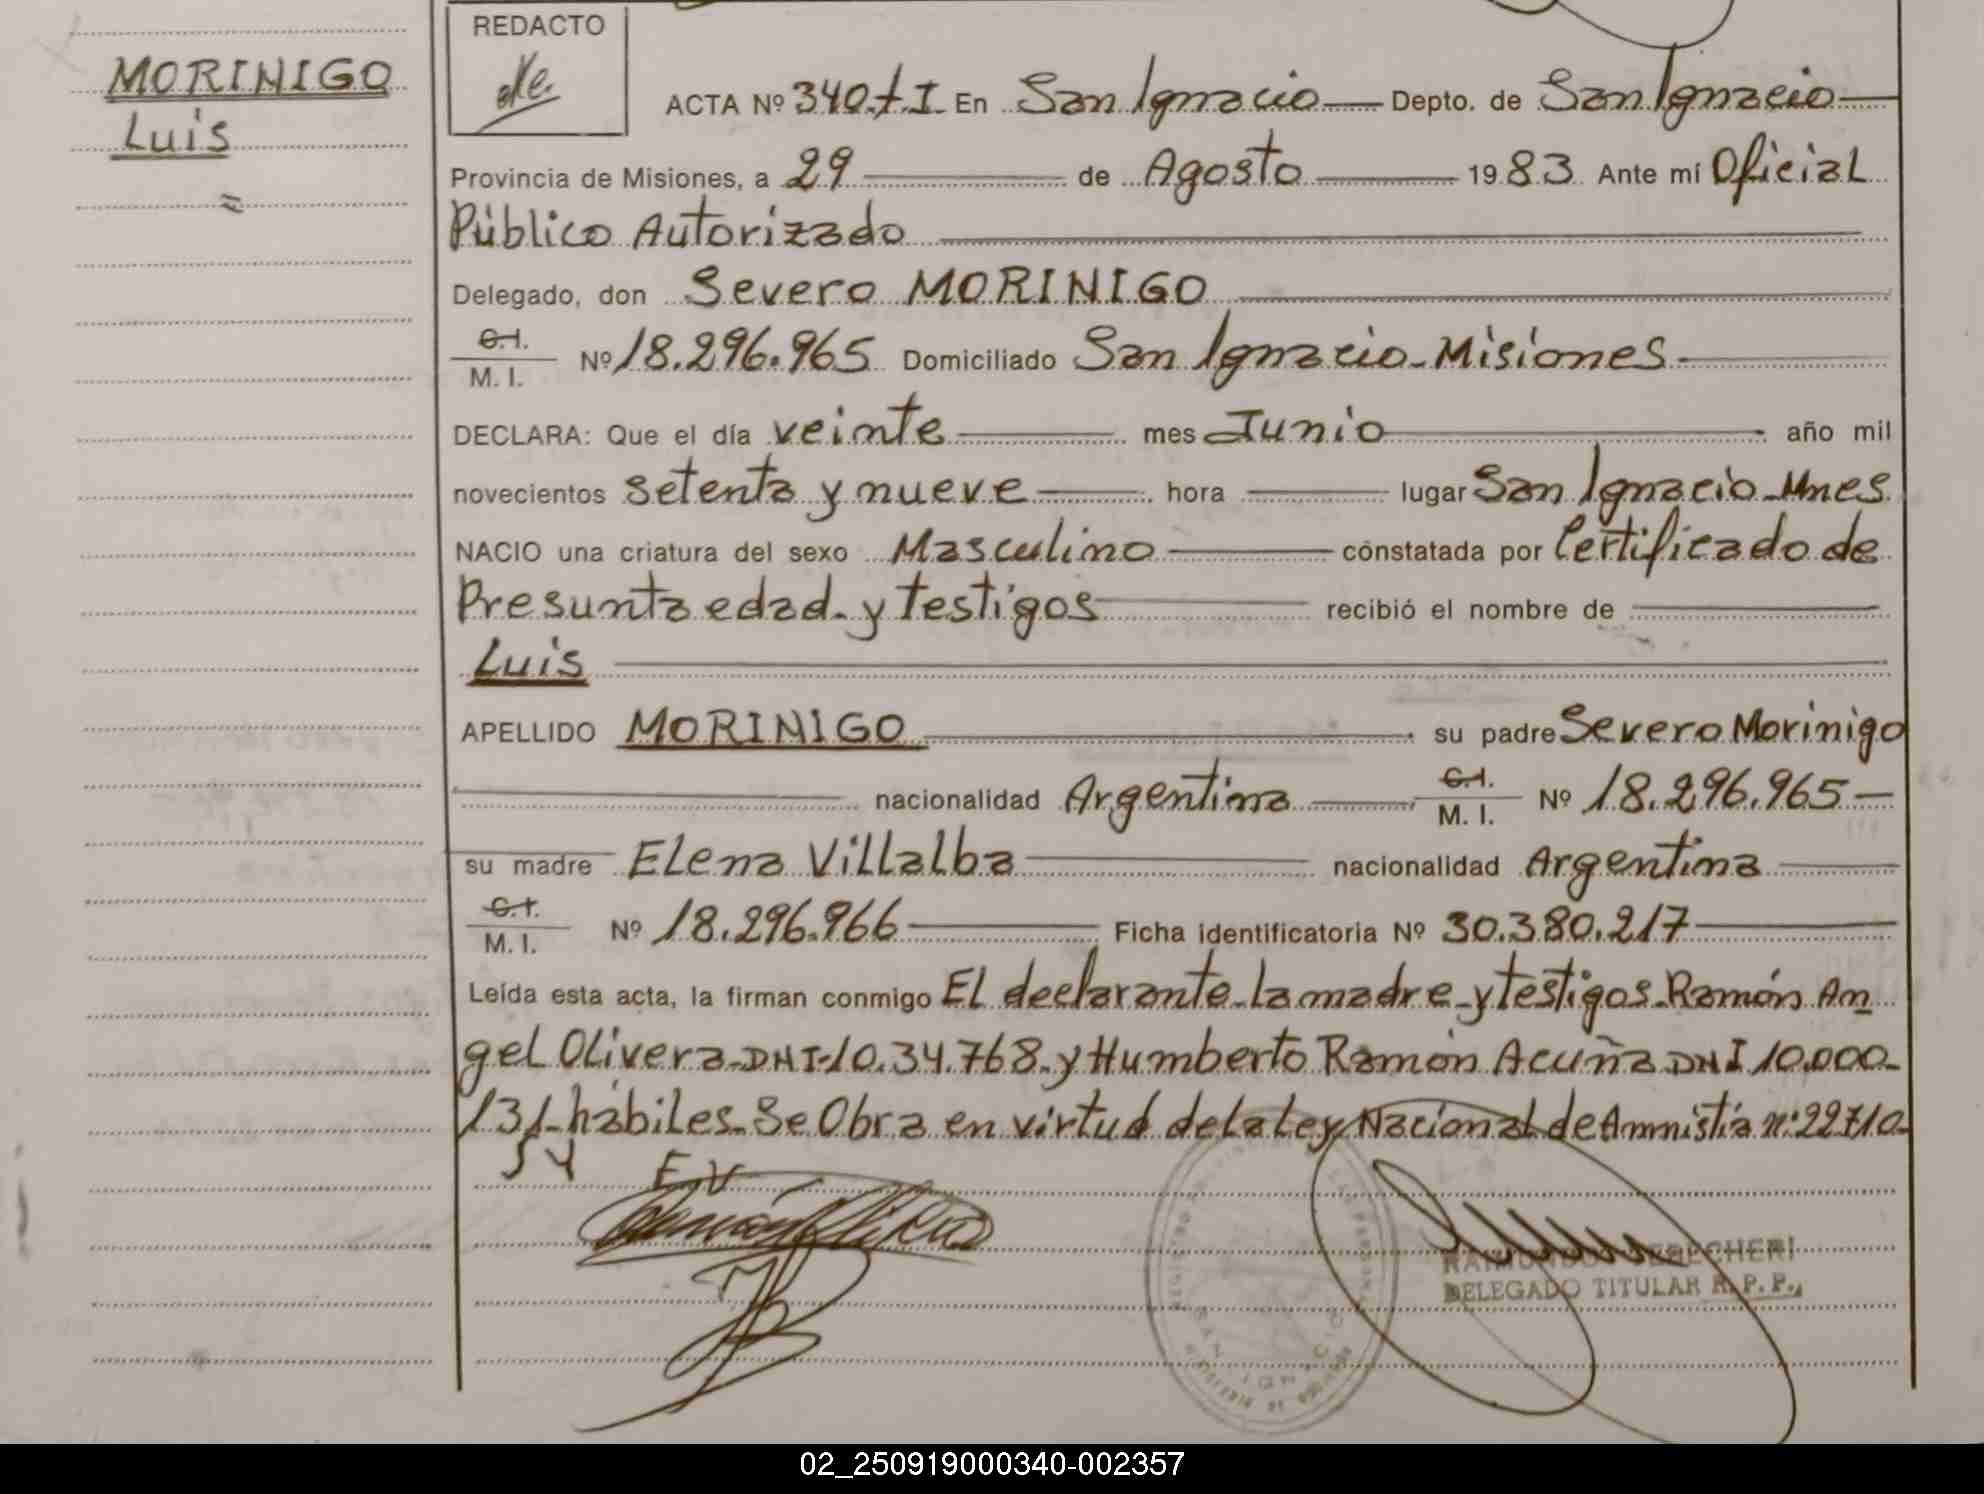 REDACTO
MORINIGO
Luis
ACTA Nº 340.t.I En San Ignacio Depto. de San Ignacio
Provincia de Misiones, a 29 de Agosto 1983 Ante mí Oficial
Público Autorizado
Delegado, don Severo MORINIGO
C.I.
M. I. Nº 18.296.965 Domiciliado San Ignacio-Misiones
DECLARA: Que el día veinte mes Junio año mil
novecientos setenta y nueve hora lugar San Ignacio-Mnes
NACIO una criatura del sexo Masculino constatada por Certificado de
Presunta edad-y testigos recibió el nombre de
Luis
APELLIDO MORINIGO su padre Severo Morinigo
nacionalidad Argentina C.I. M. I. Nº 18.296.965-
su madre Elena Villalba nacionalidad Argentina
C.I.
M. I. Nº 18.296.966 Ficha identificatoria Nº 30.380.217
Leída esta acta, la firman conmigo El declarante-la madre-y testigos-Ramón An
gel Olivera-DNI-10.34.768-y Humberto Ramón Acuña DNI 10.000-
131-hábiles-Se Obra en virtud de la Ley Nacional de Amnistia nº 22710-
E V
DELEGADO TITULAR R. P. P.
SAN IGNACIO
02_250919000340-002357